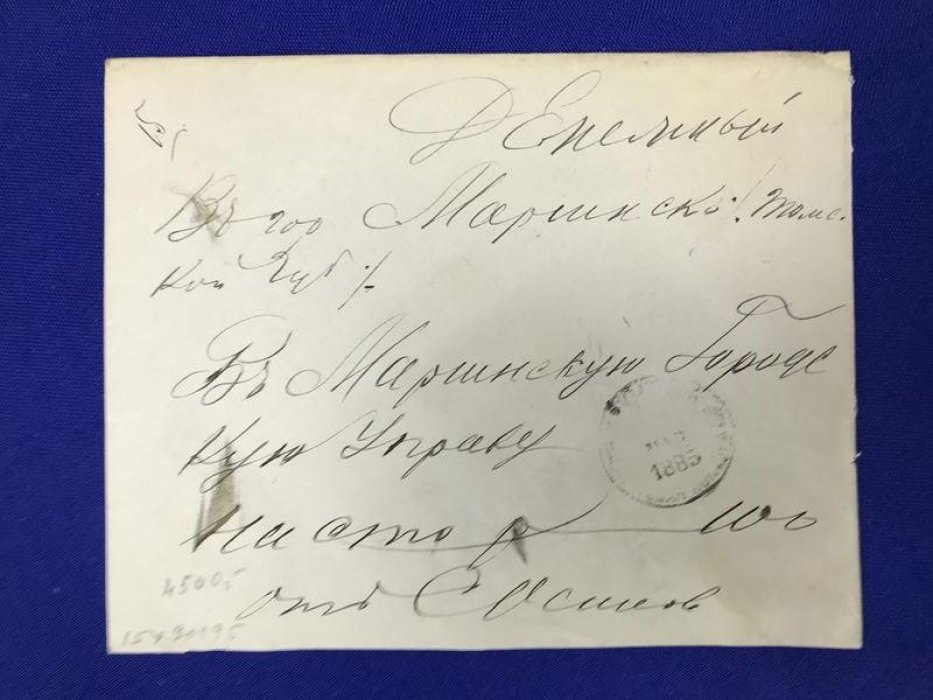 Денежный
Въ гор Маріинскъ /. Томс.
кой Губ /.
Въ Маріинскую Городс
кую Управу
на сто р 100
отъ С Осипов
МАР.
1885
4500,-